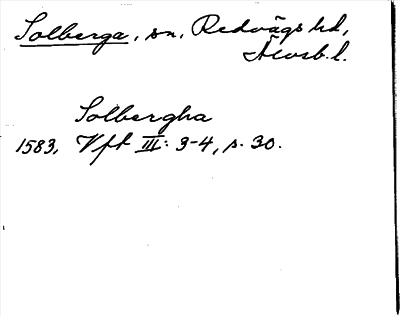 Solberga, sn, Redvägs hd,
Älvsb. l.
Solbergha
1583, Vft III: 3-4, s. 30.